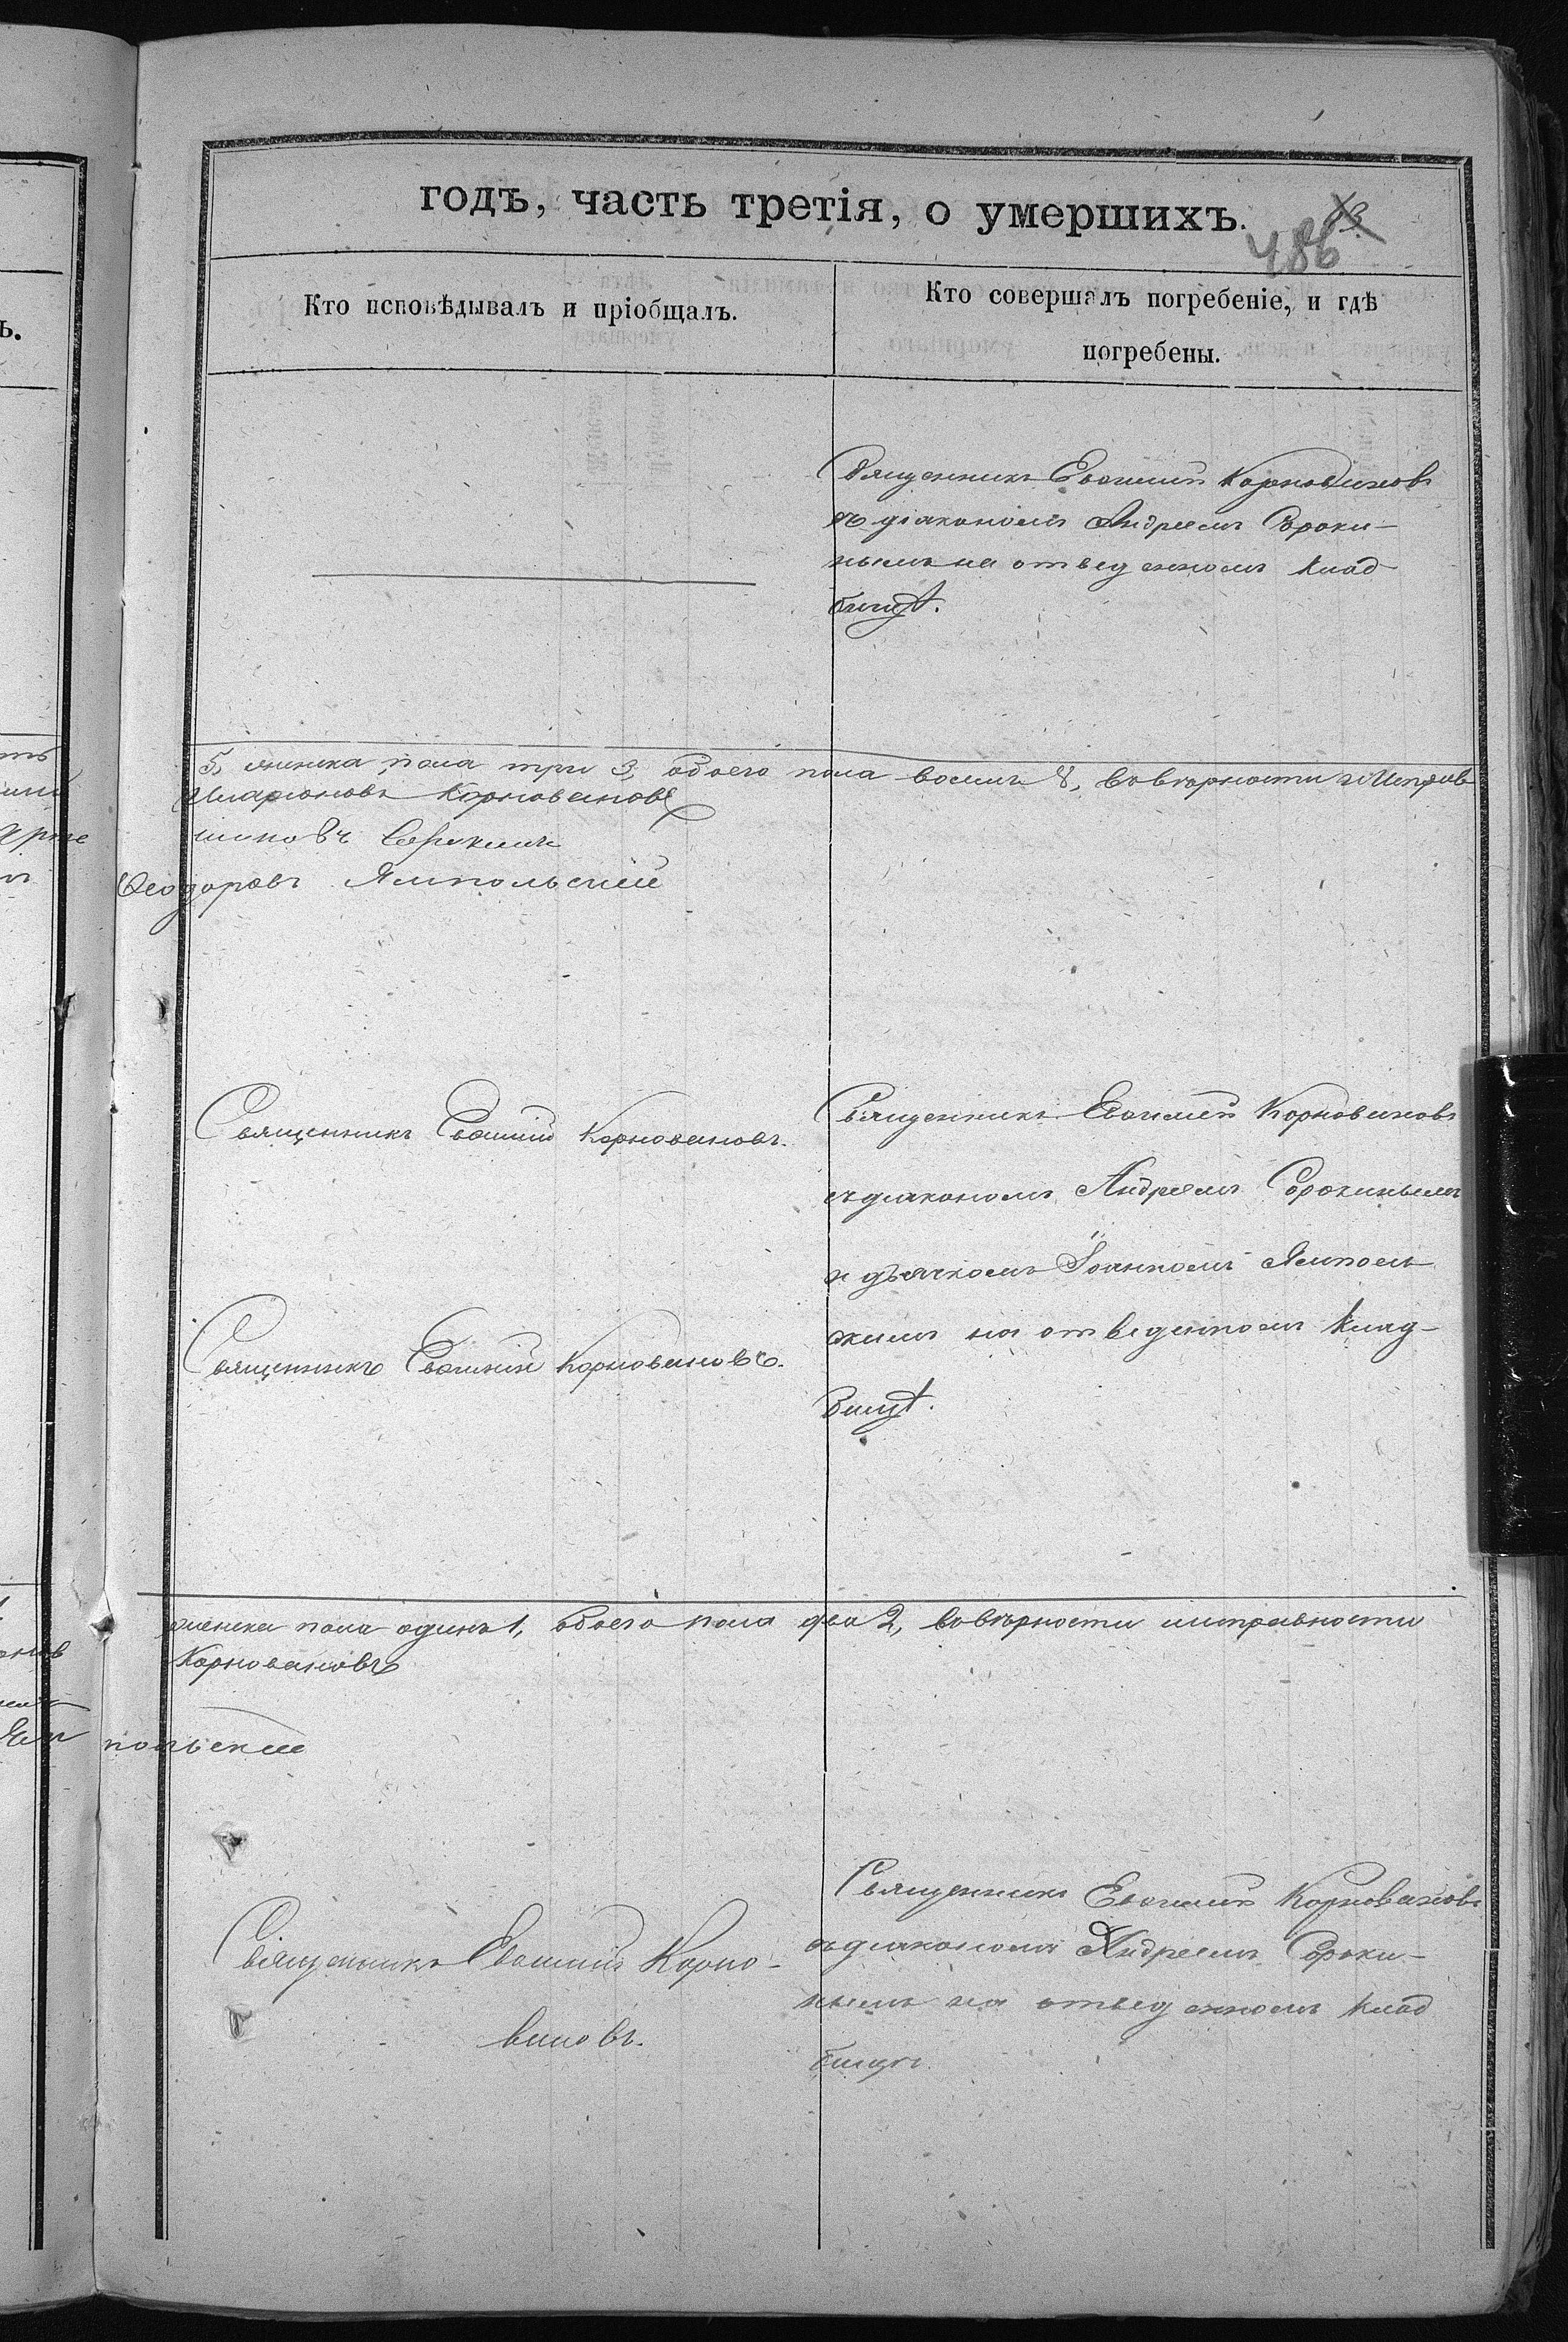 годъ, часть третія, о умершихъ.
486
Кто исповѣдывалъ и пріобщалъ.
Кто совершалъ погребеніе, и гдѣ
погребены.
Священникъ Евѳимій Корноваповъ
съ діакономъ Андреемъ Сороки-
нымъ на отведенномъ клад
бищѣ.
5, женска пола три 3, обоего пола восемь 8, вовѣрности
Иларіоновъ Корноваповъ
Сорокинъ
Ѳеодоровъ Ямпольскій
Священникъ Евѳимій Корноваповъ.
Священникъ Евѳимій Корноваповъ
съ діакономъ Андреемъ Сорокинымъ
и дьячкомъ Іоанномъ Ямполь
скимъ на отведенномъ клад-
бищѣ.
Священникъ Евѳимій Корноваповъ.
женска пола одинъ 1, обоего пола два 2, вовѣрности исправности
Корноваповъ
Ям польскій
Священникъ Евѳимій Корно-
ваповъ.
Священникъ Евѳимій Корноваповъ
съ діакономъ Андреемъ Сороки-
нымъ на отведенномъ клад
бищѣ.